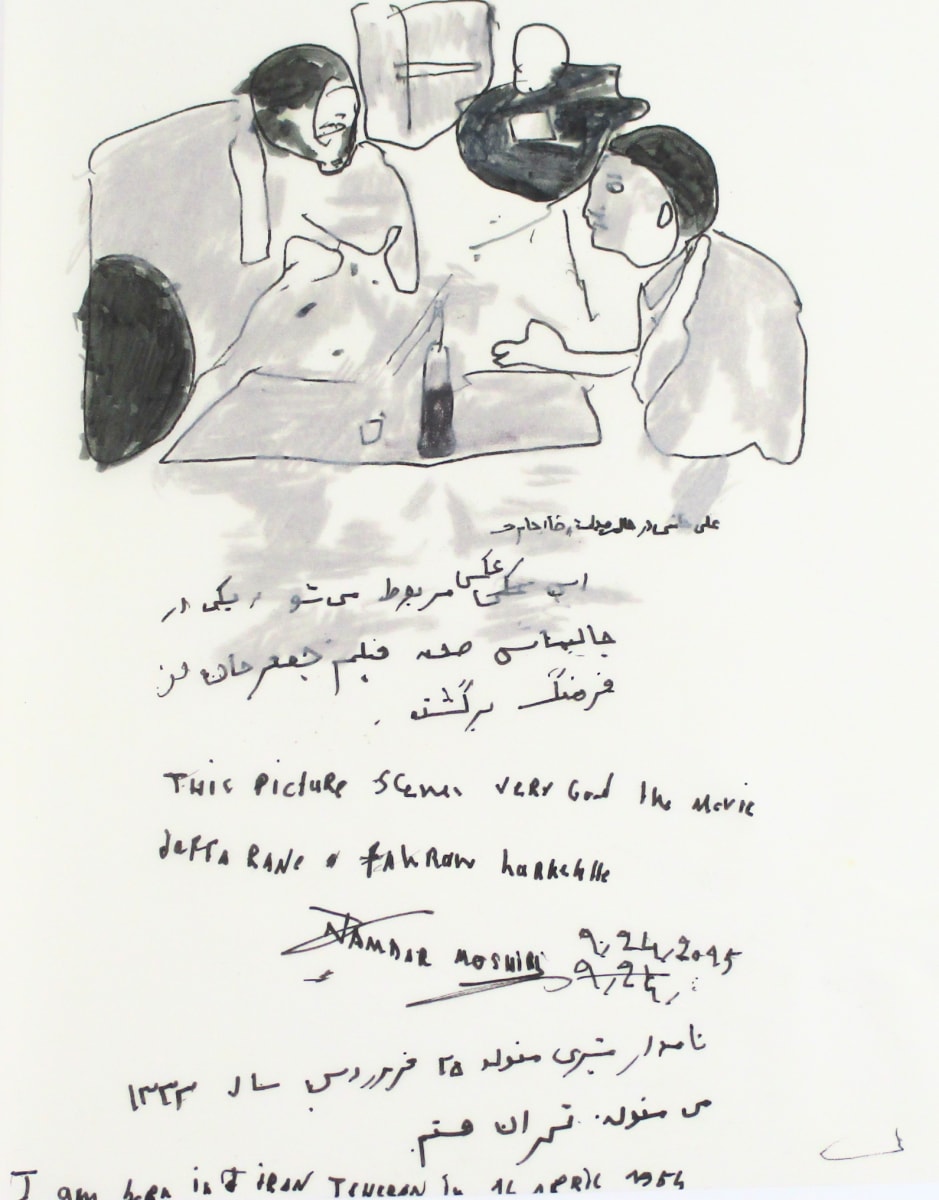 علی در حال
این عکس مربوط می شو یکی از
جالبترین صحنه فیلم جعفرخان از
فرهنگ برگشته
THIS PICTURE Scenes VERY Good The Movie
JaFFA RANe FAhROW
NAMDAR MOSHIRI 9,24,2015
9,24,
نامدار مشیری متولد ۲۵ فروردین سال ۱۳۳۳
من متولد تهران هستم
I am born in IRAN TEHERAN in 14 APRIL 1954